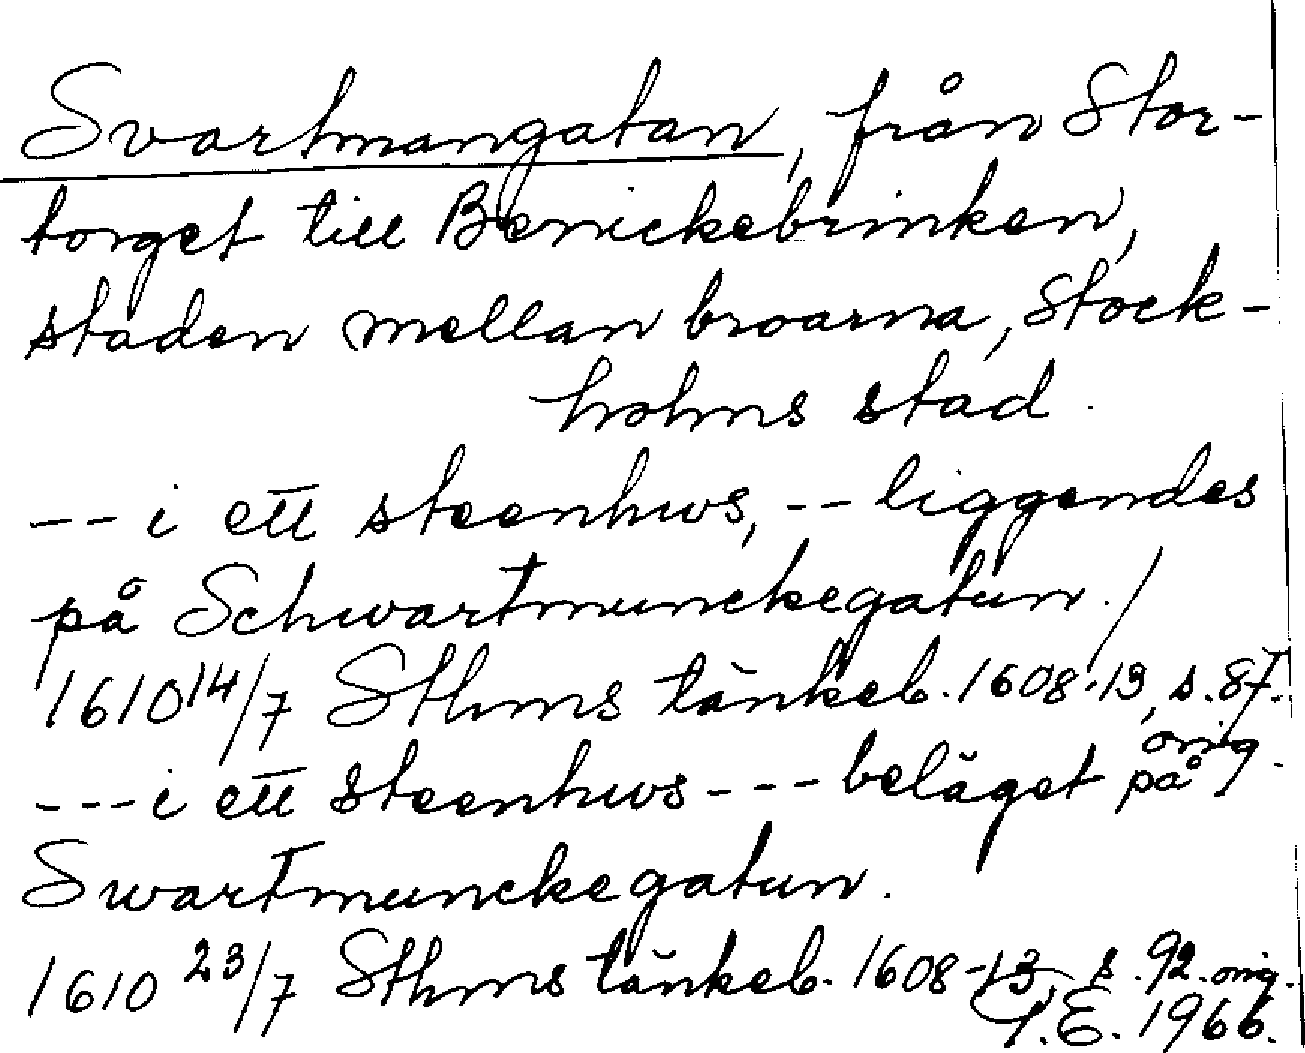 Svartmangatan, från Stor-
torget till Benickebrinken,
staden mellan broarna, Stock-
holms stad.
-- i ett steenhws, -- liggendes
på Schwartmunckegatun./
1610 14/7 Sthms tänkeb. 1608-13, s. 87.
orig.
--- i ett steenhws --- beläget på
Swartmunckegatun.
1610 23/7 Sthms tänkeb. 1608-13, s. 92. orig.
T.E. 1966.